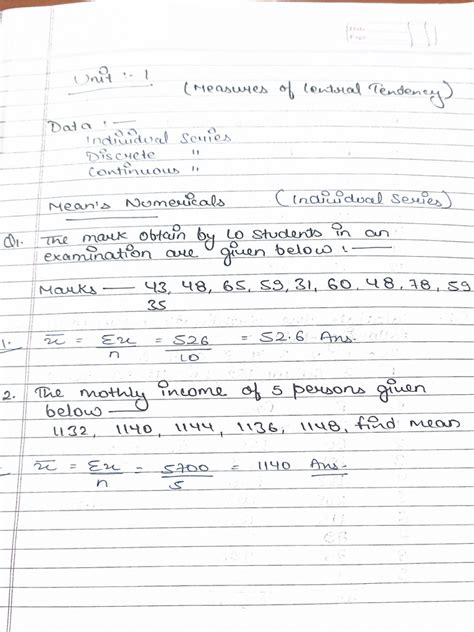 Unit :- 1
(Measures of Central Tendency)
Data :-
Individual Series
Discrete "
Continuous "
Mean's Numericals (Individual Series)
Q1. The mark obtain by 10 students in an
examination are given below :-
Marks — 43, 48, 65, 59, 31, 60, 48, 78, 59
35
1. x̄ = Σx/n = 526/10 = 52.6 Ans.
2. The mothly income of 5 persons given
below —
1132, 1140, 1144, 1136, 1148, find mean
x̄ = Σx/n = 5700/5 = 1140 Ans.